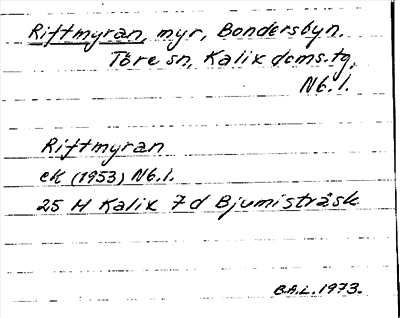 Riftmyran, myr, Bondersbyn.
Töre sn, Kalix doms.tg.
Nb. l.
Riftmyran
ek (1953) Nb. l.
25 M Kalix 7d Bjumisträsk
B.A.L. 1973.